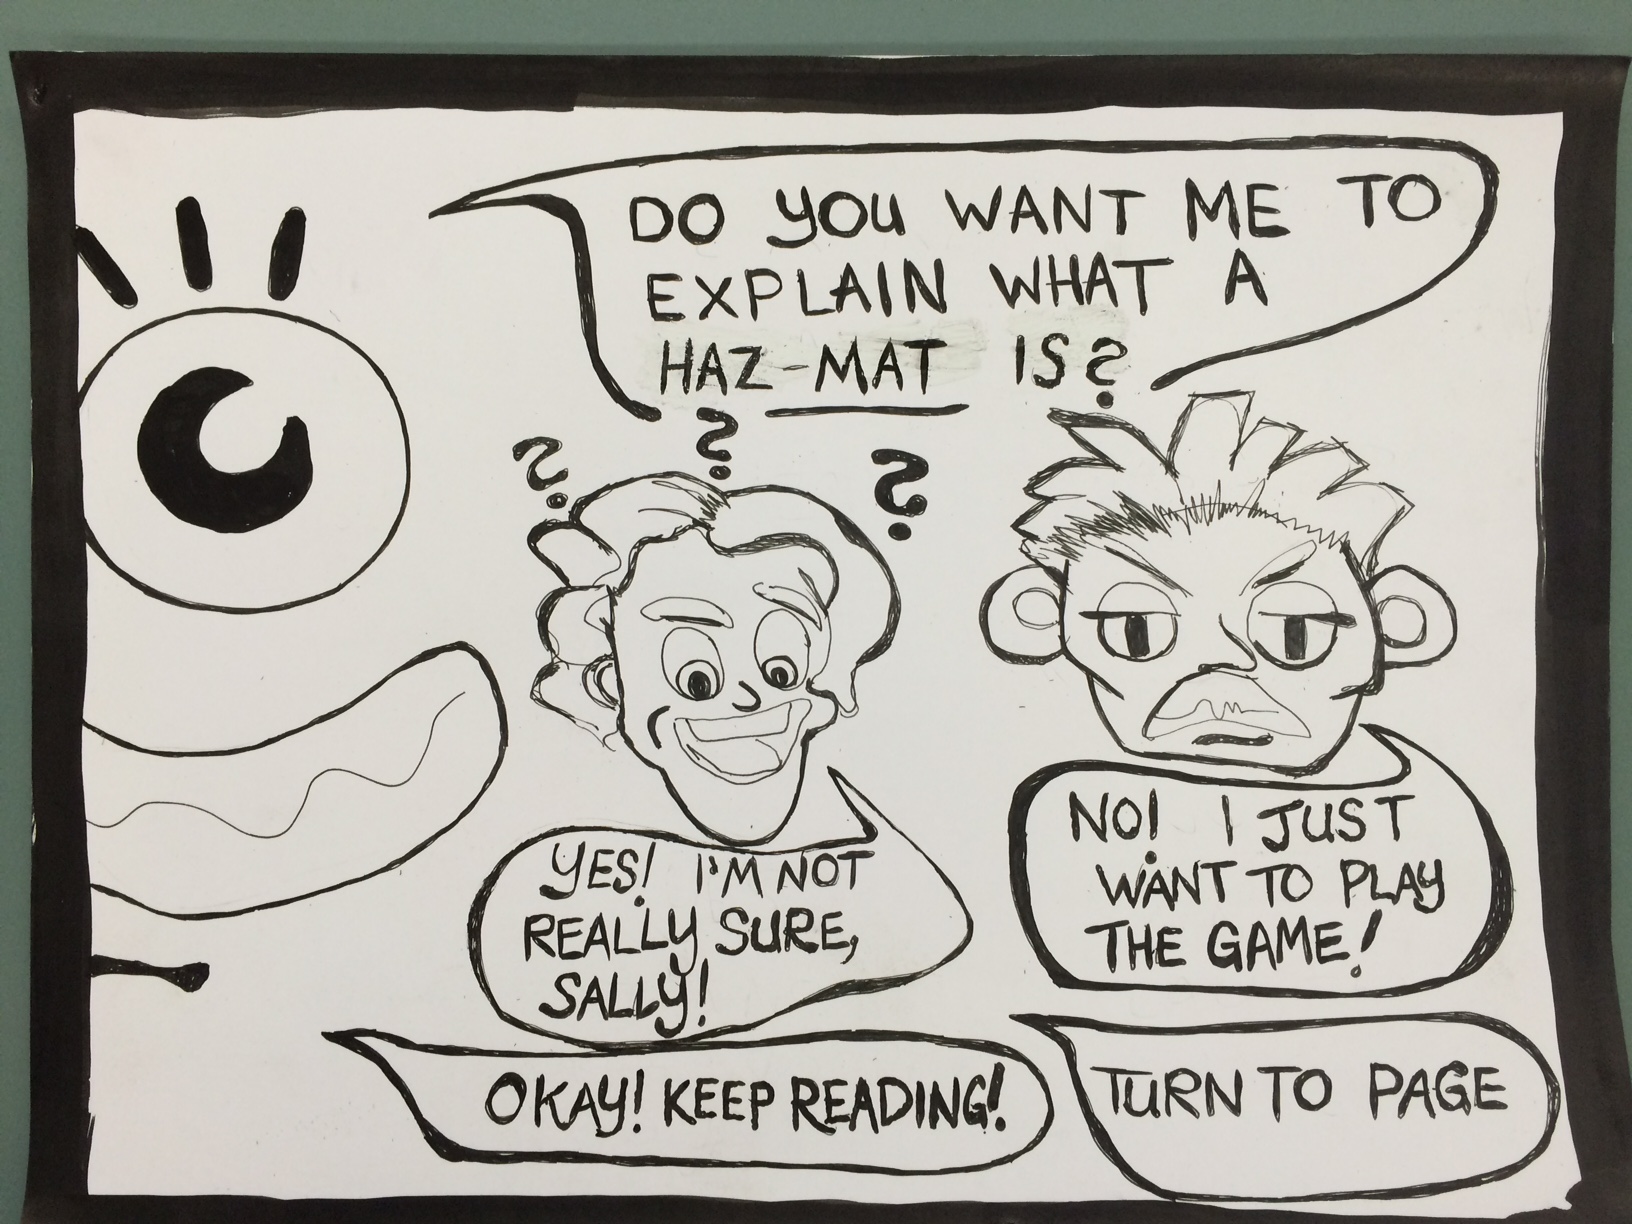 DO YOU WANT ME TO
EXPLAIN WHAT A
HAZ-MAT IS?
? ? ?
YES! I'M NOT
REALLY SURE,
SALLY!
NO! I JUST
WANT TO PLAY
THE GAME!
OKAY! KEEP READING!
TURN TO PAGE